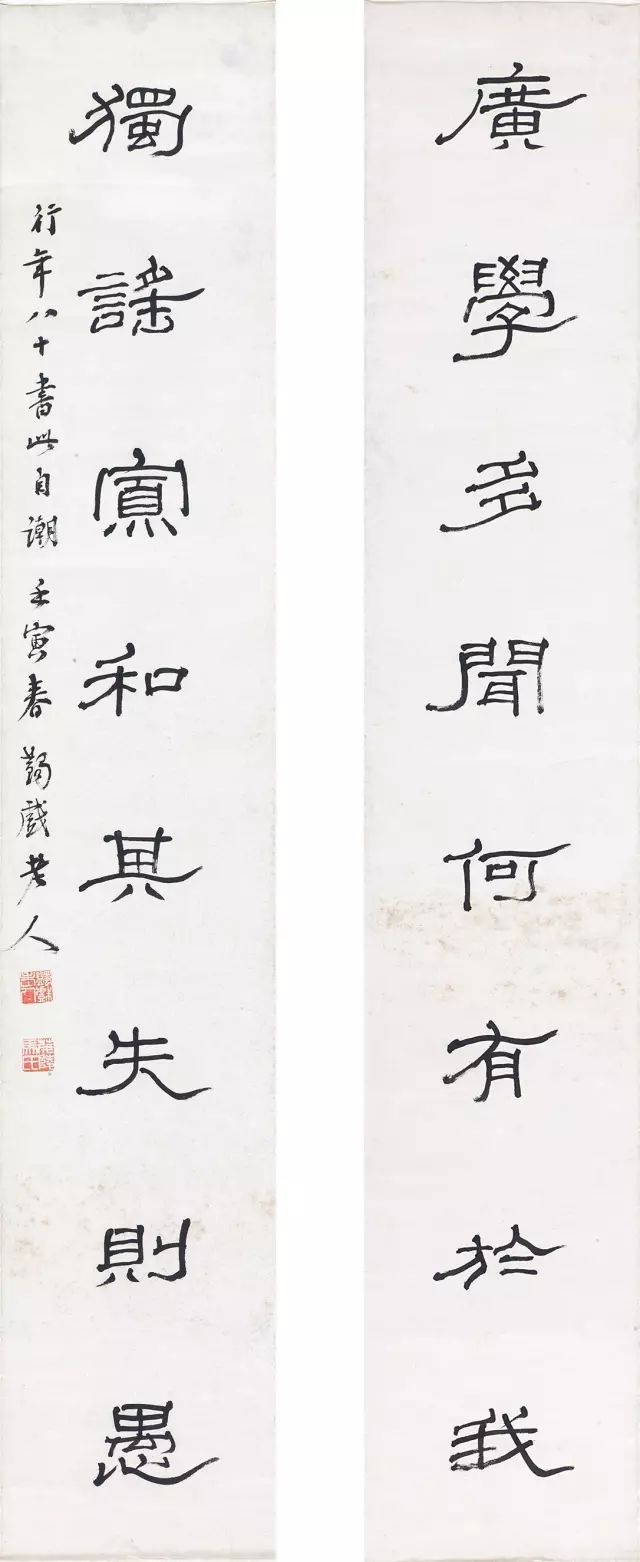 廣學多聞何有於我
獨謠寡和其失則愚
行年八十書此自謿 壬寅春 蠲戲老人